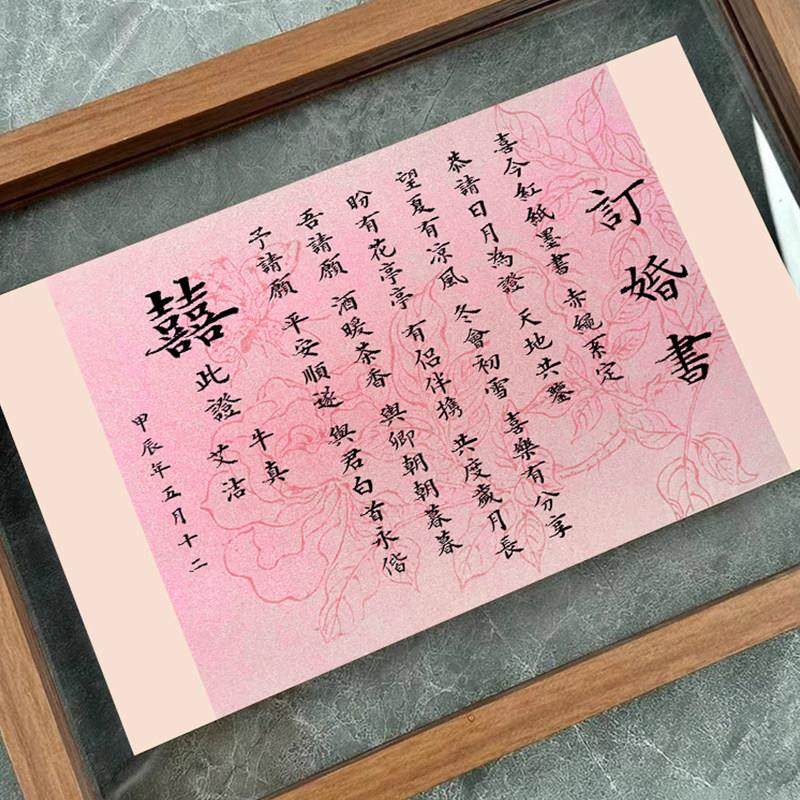 訂婚書
喜今紅紙墨書 赤繩系定
恭請日月為證 天地共鑒
望夏有凉風 冬會初雪 喜樂有分享
盼有花亭亭 有侶伴携 共度歲月長
吾請願 酒暖茶香 與卿朝朝暮暮
予請願 平安順遂 與君白首永偕
囍
牛真
此證 艾洁
甲辰年五月十二